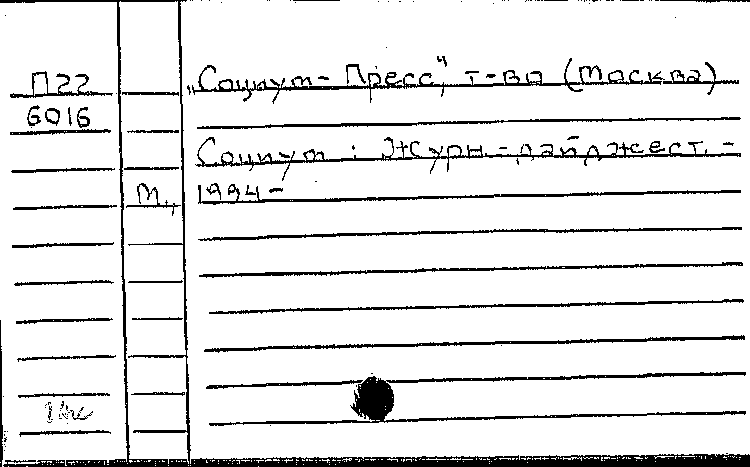 П22
6016
„Социум-Пресс", т-во (Москва)
Социум : Журн.-дайджест. -
М., 1994-